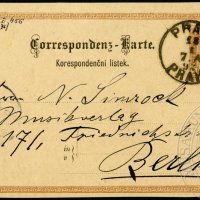 Correspondenz-Karte.
Korespondenční lístek.
PRAG
PRAH
N. Simrock
Musikverlag
171, Friedrichss
Berlin